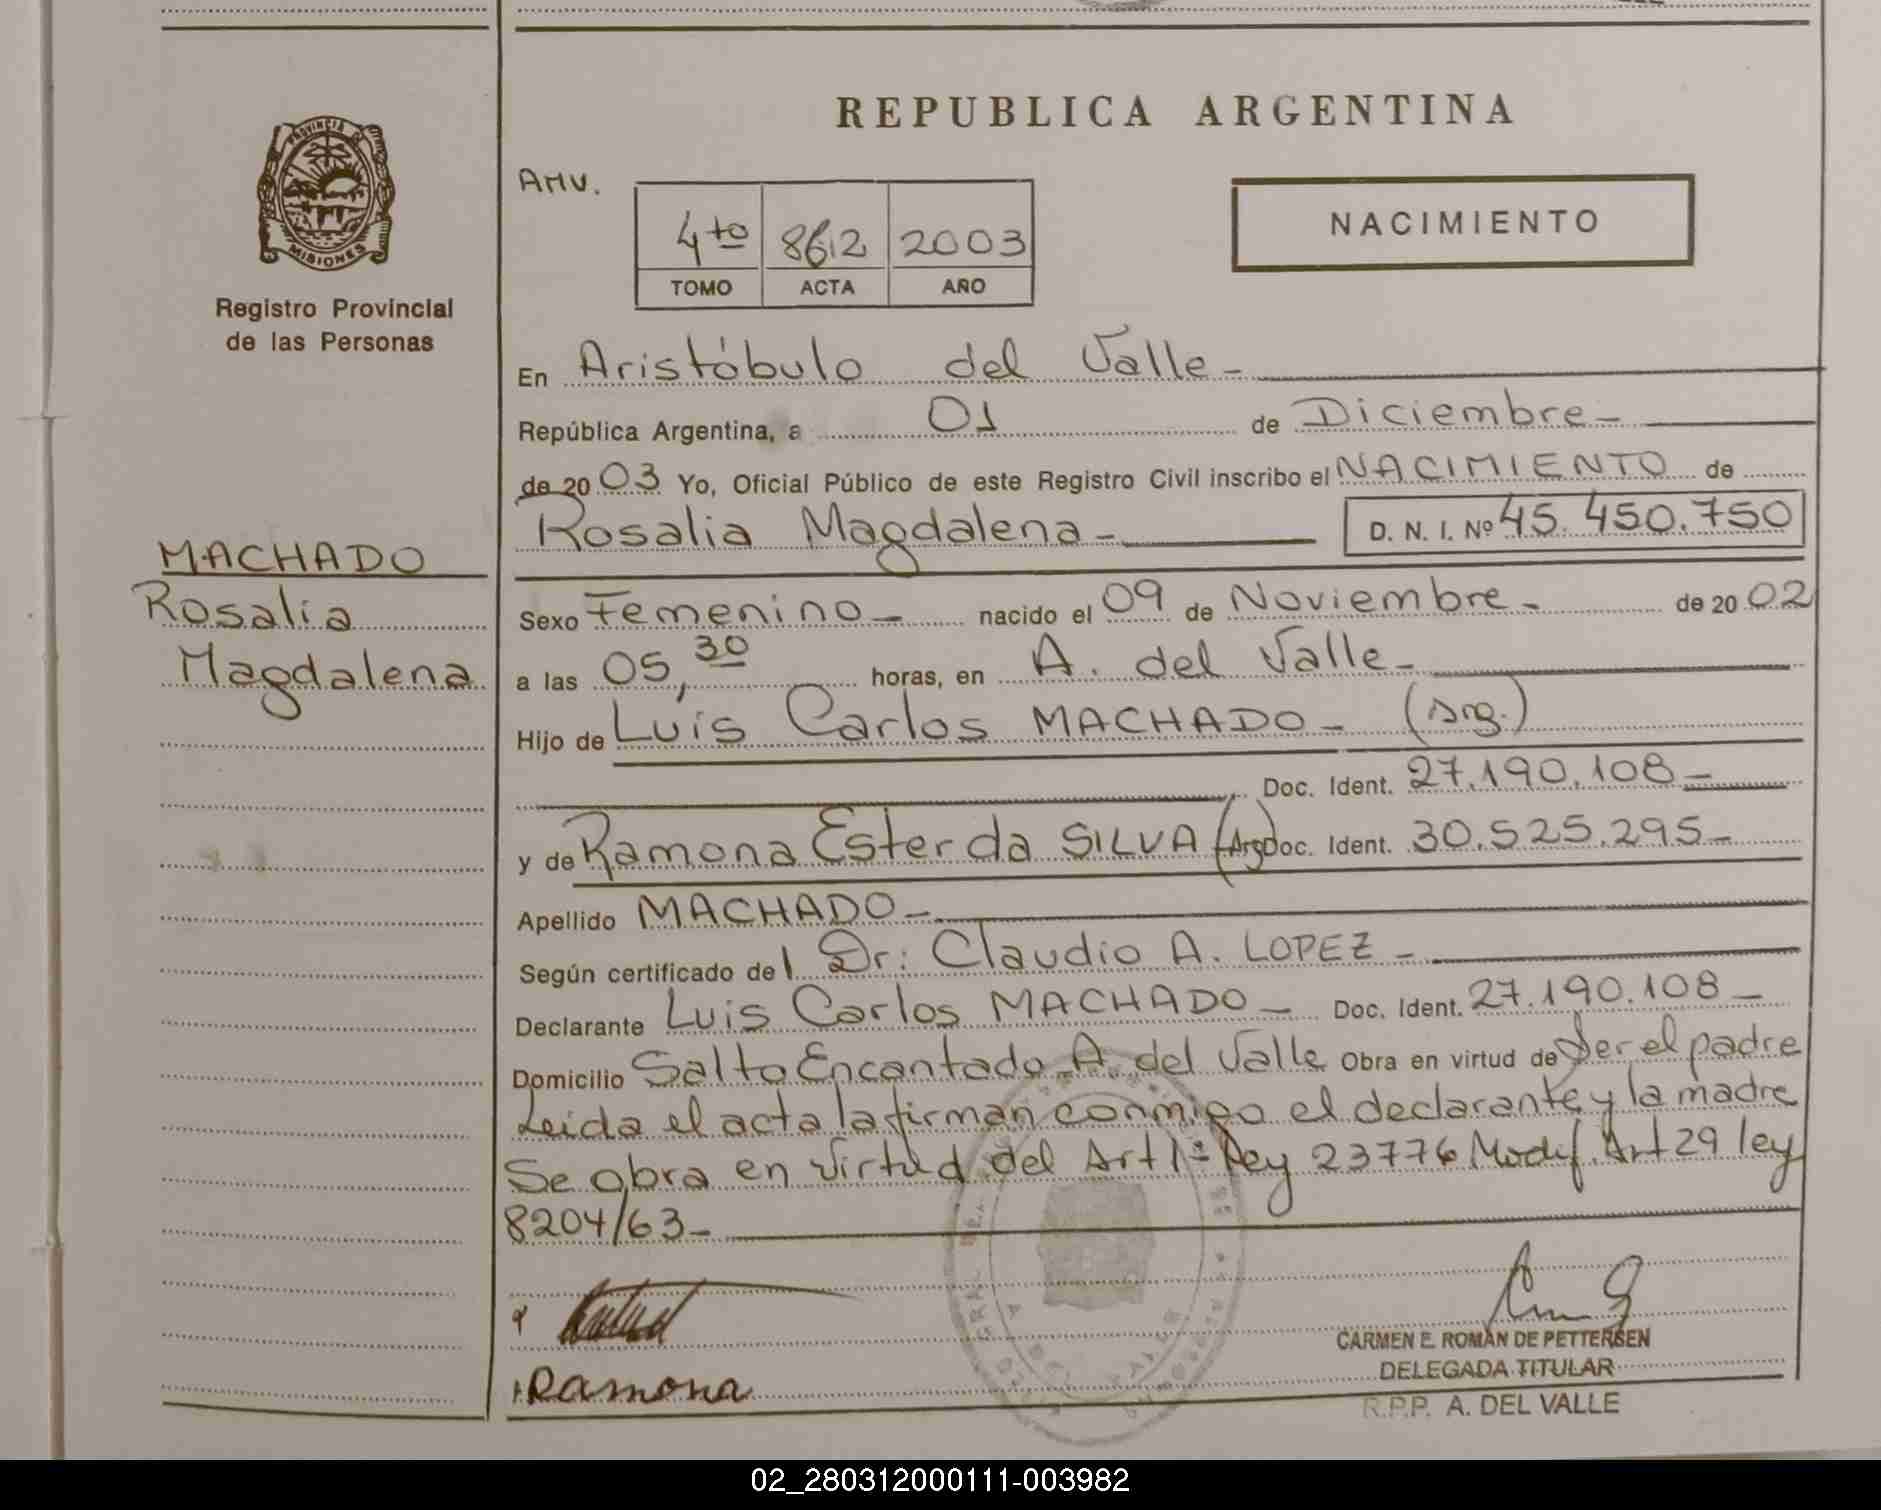 REPUBLICA ARGENTINA
PROVINCIA DE
MISIONES
Registro Provincial
de las Personas
AMV.
4to 8612 2003
TOMO ACTA AÑO
NACIMIENTO
En Aristóbulo del Valle -
República Argentina, a 01 de Diciembre -
de 2003 Yo, Oficial Público de este Registro Civil inscribo el NACIMIENTO de
Rosalia Magdalena - D. N. I. Nº 45.450.750
MACHADO
Rosalia
Magdalena
Sexo Femenino - nacido el 09 de Noviembre - de 2002
a las 05,30 horas, en A. del Valle -
Hijo de Luis Carlos MACHADO - (Arg.)
Doc. Ident. 27.190.108 -
y de Ramona Ester da SILVA (Arg) Doc. Ident. 30.525.295 -
Apellido MACHADO -
Según certificado del Dr: Claudio A. LOPEZ -
Declarante Luis Carlos MACHADO - Doc. Ident. 27.190.108 -
Domicilio Salto Encantado A. del Valle Obra en virtud de Ser el padre
Leida el acta la firman conmigo el declarante y la madre
Se obra en virtud del Art 1º Ley 23776 Modif. Art 29 ley
8204/63 -
Ramona
CARMEN E. ROMAN DE PETTERSEN
DELEGADA TITULAR
R.P.P. A. DEL VALLE
02_280312000111-003982